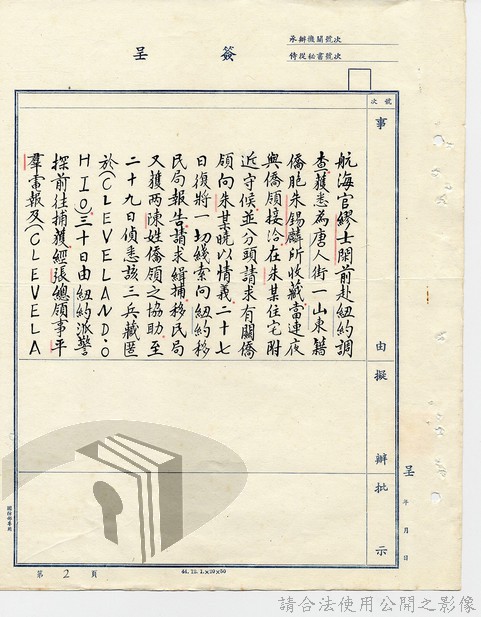 承辦機關號次
侍從秘書號次
簽呈
號次
事由擬辦批示
航海官繆士閎前赴紐約調
查獲悉為唐人街一山東籍
僑胞朱錫麟所收藏當連夜
與僑領接洽在朱某住宅附
近守候並分頭請求有關僑
領向朱某曉以情義二十七
日復將一切綫索向紐約移
民局報告請求緝捕移民局
又獲两陳姓僑領之協助至
二十九日偵悉該三兵藏匿
於(CLEVELAND.O
HIO)三十日由紐約派警
探前往捕獲經張總領事平
羣電報及(CLEVELA
呈 年 月 日
第2頁
請合法使用公開之影像